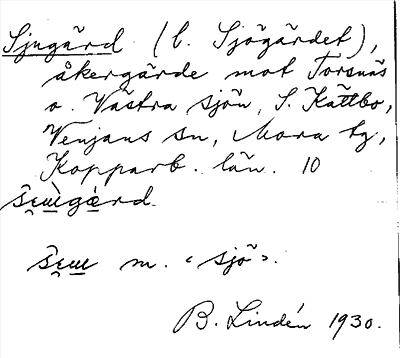 Sjugärd (l. Sjögärdet),
åkergärde mot Torsnäs
o. Västra sjön, S. Kättbo,
Venjans sn, Mora tg,
Kopparb. län. 10
gärd.
m. ‹sjö›.
B. Lindén 1930.